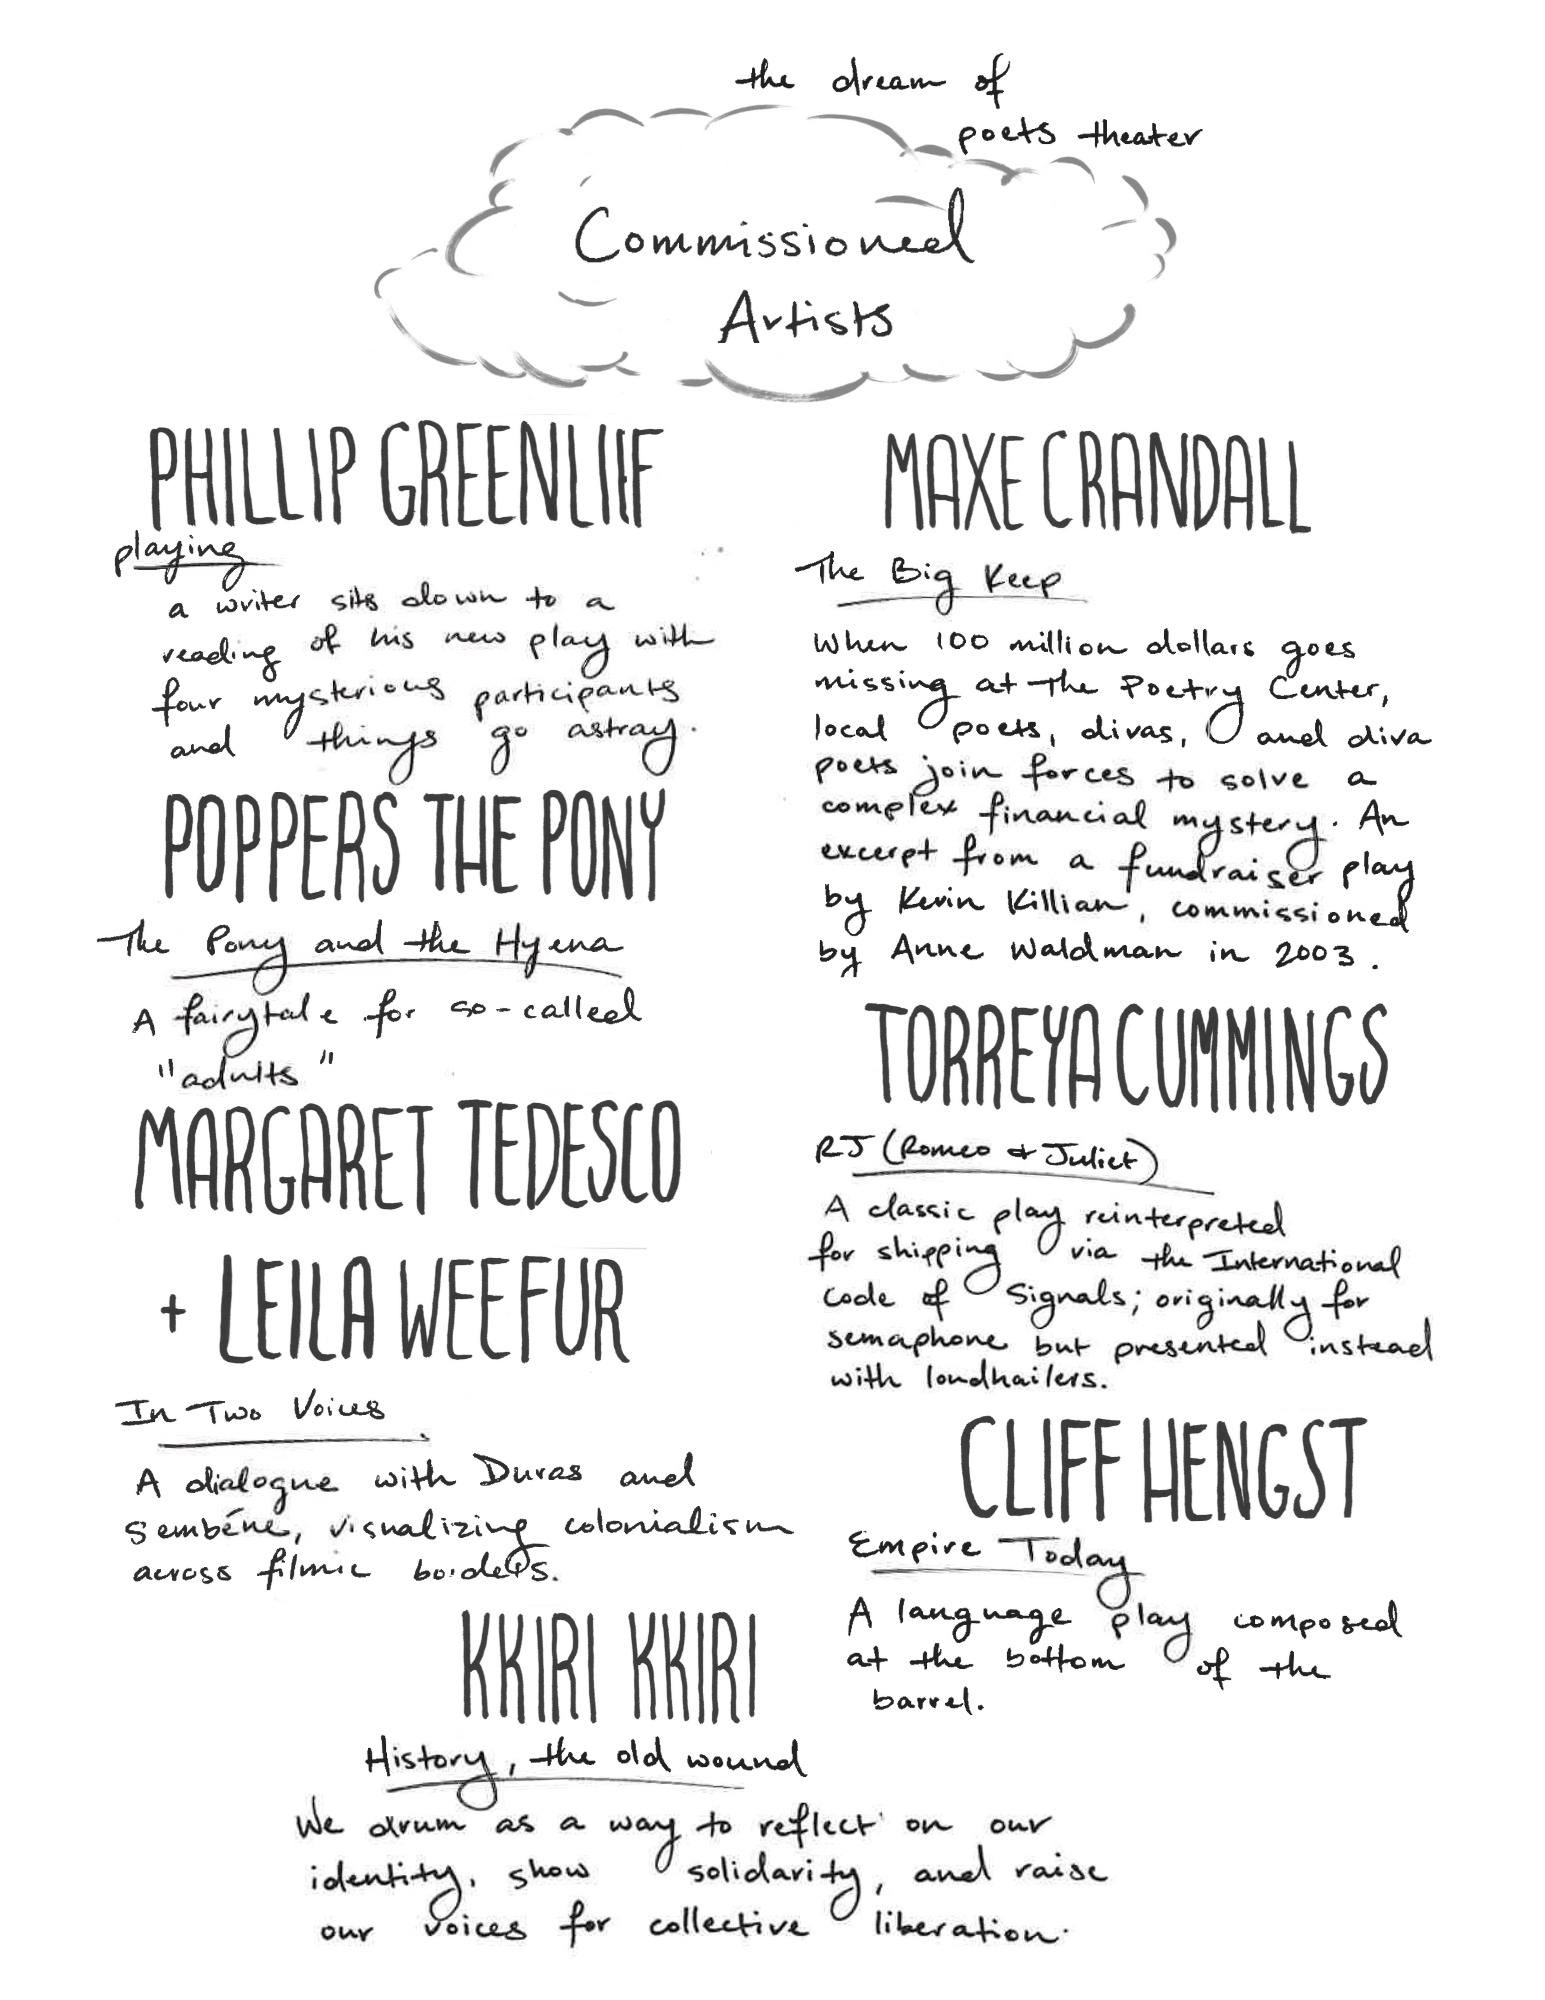 the dream of
poets theater
Commissioned
Artists
PHILLIP GREENLIEF
playing
a writer sits down to a
reading of his new play with
four mysterious participants
and things go astray.
POPPERS THE PONY
The Pony and the Hyena
A fairytale for so-called
"adults"
MARGARET TEDESCO
+ LEILA WEEFUR
In Two Voices
A dialogue with Duras and
Sembéne, visualizing colonialism
across filmic borders.
MAXE CRANDALL
The Big Keep
When 100 million dollars goes
missing at The Poetry Center,
local poets, divas, and diva
poets join forces to solve a
complex financial mystery. An
excerpt from a fundraiser play
by Kevin Killian, commissioned
by Anne Waldman in 2003.
TORREYA CUMMINGS
RJ (Romeo & Juliet)
A classic play reinterpreted
for shipping via the International
Code of Signals; originally for
semaphone but presented instead
with loudhailers.
CLIFF HENGST
Empire Today
A language play composed
at the bottom of the
barrel.
KKIRI KKIRI
History, the old wound
We drum as a way to reflect on our
identity, show solidarity, and raise
our voices for collective liberation.